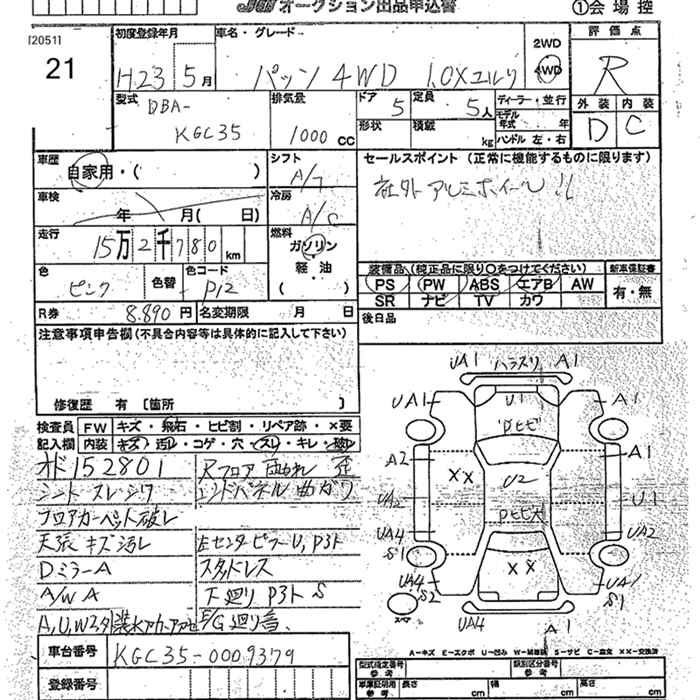 オークション出品申込書
①会場控
[20511
21
初度登録年月
車名・グレード
2WD
4WD
評価点
H23 5月
パッソ 4WD 1.0Xユルリ
R
型式
DBA-
KGC35
排気量
1000 CC
ドア
5
定員
5人
ディーラー・並行
モデル年式 年
外装
内装
形状
積載
kg
ハンドル 左・右
D
C
車歴
自家用・( )
シフト
A/T
セールスポイント (正常に機能するものに限ります)
社外アルミホイール!!
車検
年 月( 日)
冷房
A/C
走行
15万2千780km
燃料
ガソリン
・
軽・油
( )
色
ピンク
色替
色コード
P12
装備品(純正品に限り○をつけてください)
新車保証書
PS PW ABS エアB AW
有・無
SR ナビ TV カワ
R券
8.890円
名変期限 月 日
後日品
注意事項申告欄(不具合内容等は具体的に記入して下さい)
修復歴 有 〔箇所 〕
検査員
記入欄
FW キズ・飛石・ヒビ割・リペア跡・×要
内装 キズ・汚レ・コゲ・穴・スレ・キレ・破レ
オド152801
Rフロア 曲がれ 歪
シート スレ・シワ
エンドパネル曲ガリ
フロアカーペット破レ
天張 キズ汚レ
左センターピラーU,P3ト
Dミラー A
スタッドレス
A/W A
下廻りP3ト S
E/G廻り音
UA1
ハラスリ
A1
UA1
U1
A1
A2
XX
U2
A1
UA2
U1
UA4
UA2
S1
UA4
XX
UA1
S2
S1
スペア
UA4
A1
A-キズ E-エクボ U-凹み W-補修跡 S-サビ C-腐食 ××-交換済
車台番号
KGC35-0009379
登録番号
型式指定番号
参考
類別区分番号
参考
車庫証明用
参考
長さ cm
幅 cm
高さ cm